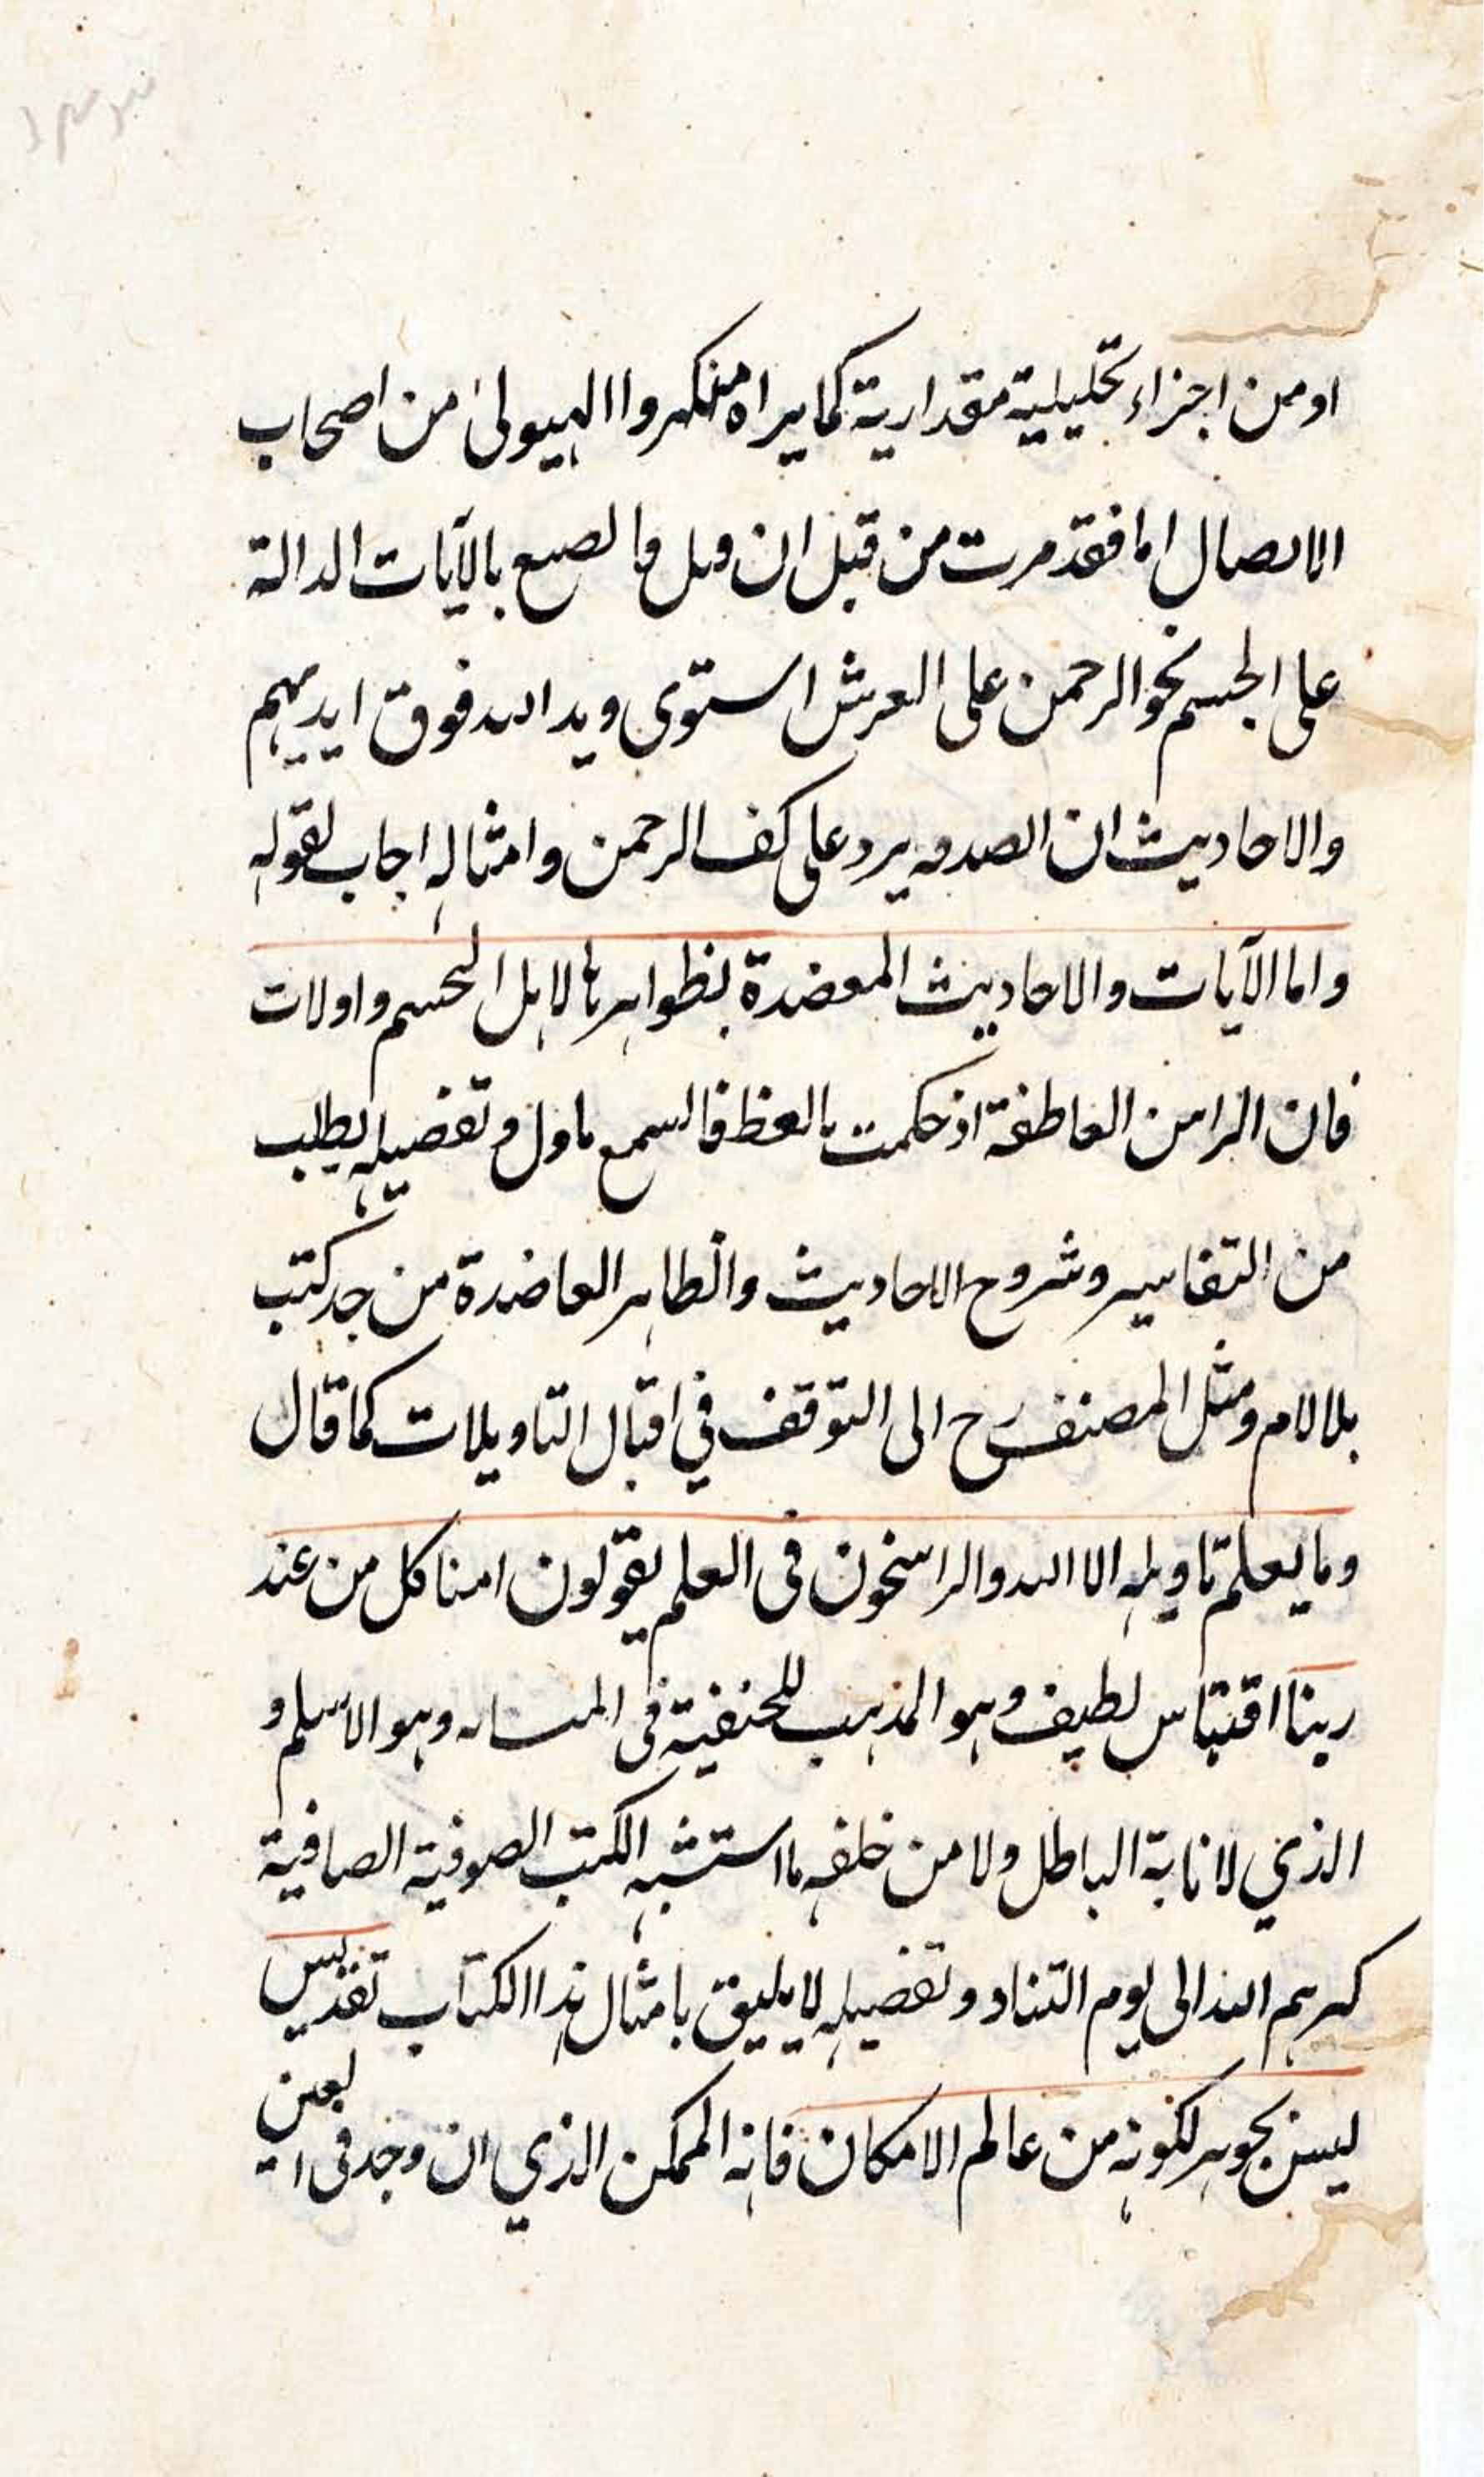 او من اجزاء تحليلية مقدارية كما يراه منكروا الهيولى من اصحاب
الاتصال اما فقد مرت من قبل ان قيل فما تصنع بالآيات الدالة
على الجسم نحو الرحمن على العرش استوى ويد الله فوق ايديهم
والاحاديث ان الصدقه يرد على كف الرحمن وامثاله اجاب بقوله
واما الآيات والاحاديث المعضدة بظواهرها لاهل التجسم واولات
فان العاطفة اذ حكمت فالسمع ماول وتفصيله يطلب
من التفاسير وشروح الاحاديث والظاهر العاضدة من كتب
بلالام ومثل المصنف رح الى التوقف في اقبال التاويلات كما قال
وما يعلم تاويله الا الله والراسخون فى العلم يقولون امنا كل من عند
ربنا اقتباس لطيف وهو المذهب للحنفية فى المساله وهو الاسلم و
الذي لا ناية الباطل ولا من خلفه ما استشبه الكتب الصوفية الصافية
كرهم الله الى يوم التناد وتفصيله لا يليق بامثال هذا الكتاب تقديس
ليس بجوهر لكونه من عالم الامكان فانه الممكن الذي ان وجد فى